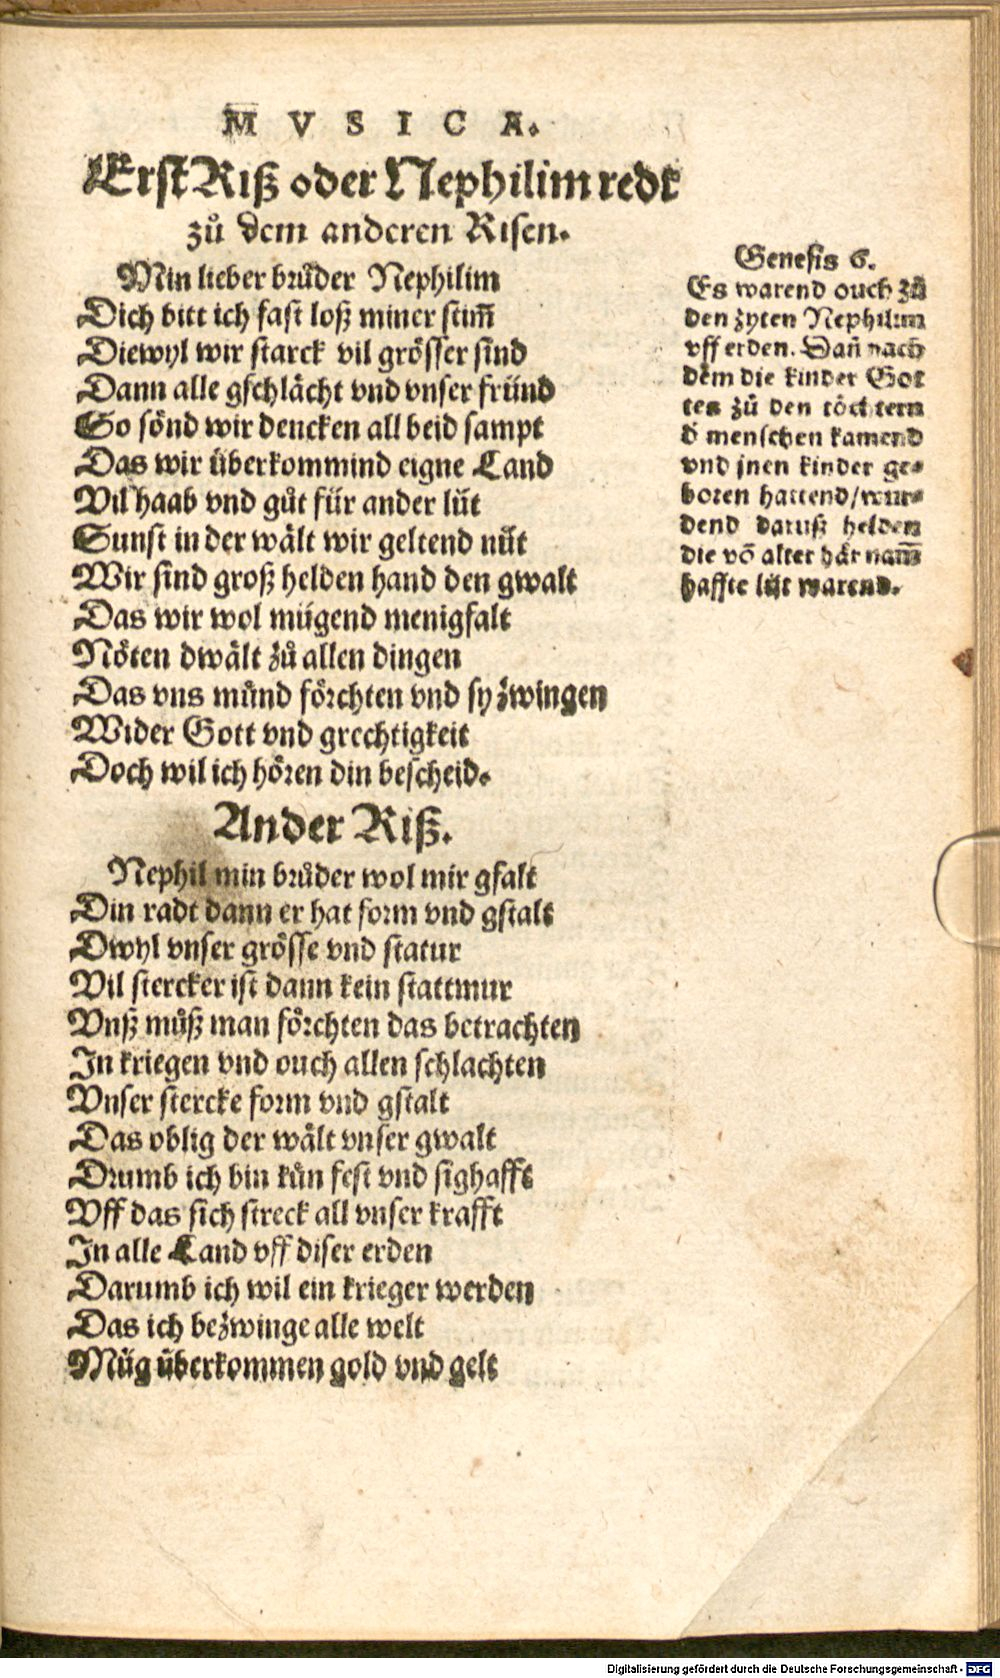 MVSICA.
Erst Riß oder Nephilim redt
zů dem anderen Risen.
Min lieber brůder Nephilim
Dich bitt ich fast loß miner stim̄
Diewyl wir starck vil grösser sind
Dann alle gschlächt vnd vnser fründ
So sönd wir dencken all beid sampt
Das wir überkommind eigne Land
Vil haab vnd gůt für ander lüt
Sunst in der wält wir geltend nüt
Wir sind groß helden hand den gwalt
Das wir wol mügend menigfalt
Nöten dwält zů allen dingen
Das vns můnd förchten vnd sy zwingen
Wider Gott vnd grechtigkeit
Doch wil ich hören din bescheid.
Ander Riß.
Nephil min brůder wol mir gfalt
Din radt dann er hat form vnd gstalt
Dwyl vnser grösse vnd statur
Vil stercker ist dann kein stattmur
Vnß můß man förchten das betrachten
In kriegen vnd ouch allen schlachten
Vnser stercke form vnd gstalt
Das oblig der wält vnser gwalt
Drumb ich bin kůn fest vnd sighafft
Vff das sich streck all vnser krafft
In alle Land vff diser erden
Darumb ich wil ein krieger werden
Das ich bezwinge alle welt
Müg überkommen gold vnd gelt
Genesis 6.
Es warend ouch zů
den zyten Nephilim
vff erden. Dañ nach
dem die kinder Got
tes zů den töchtern
d̓ menschen kamend
vnd jnen kinder ge-
boren hattend/wur-
dend daruß helden
die võ alter här nam̄
haffte lüt warend.
Digitalisierung gefördert durch die Deutsche Forschungsgemeinschaft - DFG